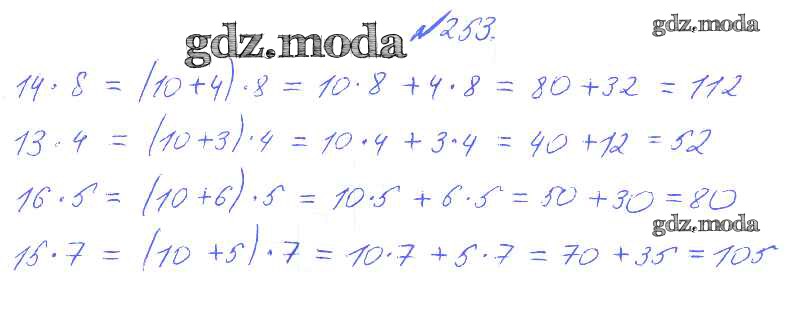 №253.
gdz.moda
gdz.moda
14·8 = (10+4)·8 = 10·8 + 4·8 = 80 + 32 = 112
13·4 = (10+3)·4 = 10·4 + 3·4 = 40 + 12 = 52
16·5 = (10+6)·5 = 10·5 + 6·5 = 50 + 30 = 80
gdz.moda
15·7 = (10+5)·7 = 10·7 + 5·7 = 70 + 35 = 105